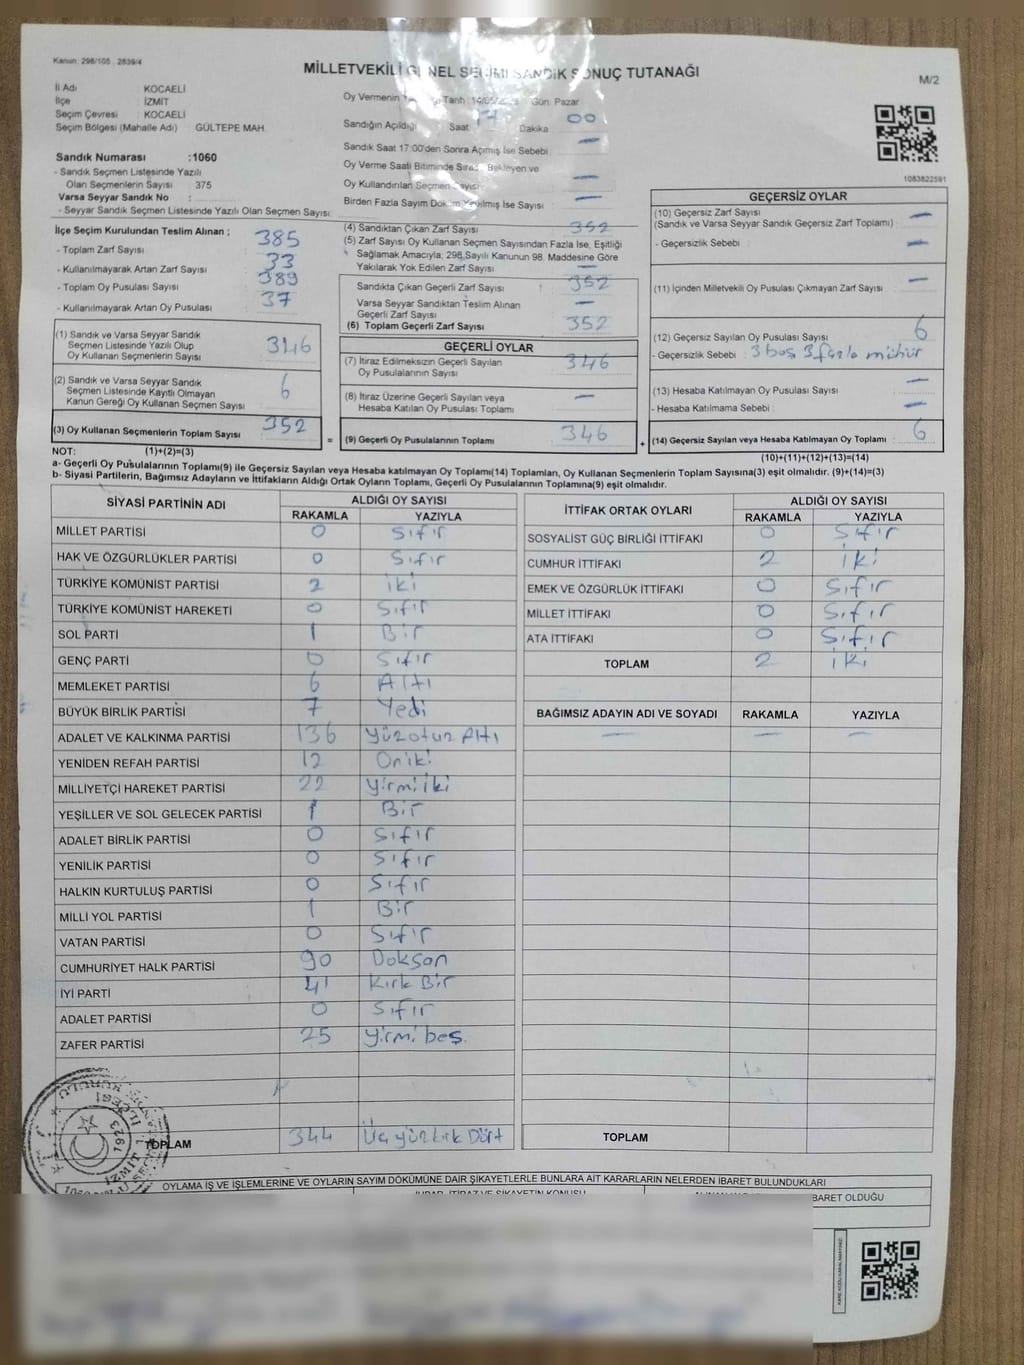 Kanun: 298/105 2839/4
MİLLETVEKİLİ GENEL SEÇİMİ SANDIK SONUÇ TUTANAĞI
M/2
İl Adı KOCAELİ
İlçe İZMİT
Seçim Çevresi KOCAELİ
Seçim Bölgesi (Mahalle Adı) GÜLTEPE MAH.
Sandık Numarası :1060
- Sandık Seçmen Listesinde Yazılı
Olan Seçmenlerin Sayısı 375
Varsa Seyyar Sandık No :
- Seyyar Sandık Seçmen Listesinde Yazılı Olan Seçmen Sayısı:
Oy Vermenin Tarihi :14/05/ Gün: Pazar
Sandığın Açıldığı Saat Dakika 00
Sandık Saat 17:00'den Sonra Açılmış İse Sebebi : —
Oy Verme Saati Bitiminde Sırada Bekleyen ve
Oy Kullandırılan Seçmen Sayısı : —
Birden Fazla Sayım Döküm Yapılmış İse Sayısı : —
1083822591
İlçe Seçim Kurulundan Teslim Alınan ;
- Toplam Zarf Sayısı 385
- Kullanılmayarak Artan Zarf Sayısı 33
- Toplam Oy Pusulası Sayısı 389
- Kullanılmayarak Artan Oy Pusulası 37
(1) Sandık ve Varsa Seyyar Sandık
Seçmen Listesinde Yazılı Olup
Oy Kullanan Seçmenlerin Sayısı 346
(2) Sandık ve Varsa Seyyar Sandık
Seçmen Listesinde Kayıtlı Olmayan
Kanun Gereği Oy Kullanan Seçmen Sayısı 6
(3) Oy Kullanan Seçmenlerin Toplam Sayısı 352
(4) Sandıktan Çıkan Zarf Sayısı 352
(5) Zarf Sayısı Oy Kullanan Seçmen Sayısından Fazla İse, Eşitliği
Sağlamak Amacıyla; 298 Sayılı Kanunun 98. Maddesine Göre
Yakılarak Yok Edilen Zarf Sayısı —
Sandıkta Çıkan Geçerli Zarf Sayısı : 352
Varsa Seyyar Sandıktan Teslim Alınan
Geçerli Zarf Sayısı —
(6) Toplam Geçerli Zarf Sayısı 352
GEÇERLİ OYLAR
(7) İtiraz Edilmeksizin Geçerli Sayılan
Oy Pusulalarının Sayısı 346
(8) İtiraz Üzerine Geçerli Sayılan veya
Hesaba Katılan Oy Pusulası Toplamı —
= (9) Geçerli Oy Pusulalarının Toplamı 346
GEÇERSİZ OYLAR
(10) Geçersiz Zarf Sayısı
(Sandık ve Varsa Seyyar Sandık Geçersiz Zarf Toplamı) : —
- Geçersizlik Sebebi : —
(11) İçinden Milletvekili Oy Pusulası Çıkmayan Zarf Sayısı : —
(12) Geçersiz Sayılan Oy Pusulası Sayısı 6
- Geçersizlik Sebebi : 3 boş 3 fazla mühür
(13) Hesaba Katılmayan Oy Pusulası Sayısı —
- Hesaba Katılmama Sebebi : —
+ (14) Geçersiz Sayılan veya Hesaba Katılmayan Oy Toplamı 6
NOT: (1)+(2)=(3) (10)+(11)+(12)+(13)=(14)
a- Geçerli Oy Pusulalarının Toplamı(9) ile Geçersiz Sayılan veya Hesaba katılmayan Oy Toplamı(14) Toplamları, Oy Kullanan Seçmenlerin Toplam Sayısına(3) eşit olmalıdır. (9)+(14)=(3)
b- Siyasi Partilerin, Bağımsız Adayların ve İttifakların Aldığı Ortak Oyların Toplamı, Geçerli Oy Pusulalarının Toplamına(9) eşit olmalıdır.
SİYASİ PARTİNİN ADI ALDIĞI OY SAYISI
RAKAMLA YAZIYLA
MİLLET PARTİSİ 0 Sıfır
HAK VE ÖZGÜRLÜKLER PARTİSİ 0 Sıfır
TÜRKİYE KOMÜNİST PARTİSİ 2 iki
TÜRKİYE KOMÜNİST HAREKETİ 0 Sıfır
SOL PARTİ 1 Bir
GENÇ PARTİ 0 Sıfır
MEMLEKET PARTİSİ 6 Altı
BÜYÜK BİRLİK PARTİSİ 7 Yedi
ADALET VE KALKINMA PARTİSİ 136 Yüzotuz Altı
YENİDEN REFAH PARTİSİ 12 Oniki
MİLLİYETÇİ HAREKET PARTİSİ 22 Yirmi iki
YEŞİLLER VE SOL GELECEK PARTİSİ 1 Bir
ADALET BİRLİK PARTİSİ 0 Sıfır
YENİLİK PARTİSİ 0 Sıfır
HALKIN KURTULUŞ PARTİSİ 0 Sıfır
MİLLİ YOL PARTİSİ 1 Bir
VATAN PARTİSİ 0 Sıfır
CUMHURİYET HALK PARTİSİ 90 Doksan
İYİ PARTİ 41 Kırk Bir
ADALET PARTİSİ 0 Sıfır
ZAFER PARTİSİ 25 Yirmi beş
TOPLAM 344 Üç yüz kırk Dört
İTTİFAK ORTAK OYLARI ALDIĞI OY SAYISI
RAKAMLA YAZIYLA
SOSYALİST GÜÇ BİRLİĞİ İTTİFAKI 0 Sıfır
CUMHUR İTTİFAKI 2 İki
EMEK VE ÖZGÜRLÜK İTTİFAKI 0 Sıfır
MİLLET İTTİFAKI 0 Sıfır
ATA İTTİFAKI 0 Sıfır
TOPLAM 2 İki
BAĞIMSIZ ADAYIN ADI VE SOYADI RAKAMLA YAZIYLA
— — —
TOPLAM
İZMİT İLÇESİ
1623
OYLAMA İŞ VE İŞLEMLERİNE VE OYLARIN SAYIM DÖKÜMÜNE DAİR ŞİKAYETLERLE BUNLARA AİT KARARLARIN NELERDEN İBARET BULUNDUKLARI
İHBAR, İTİRAZ VE ŞİKAYETİN KONUSU
İBARET OLDUĞU